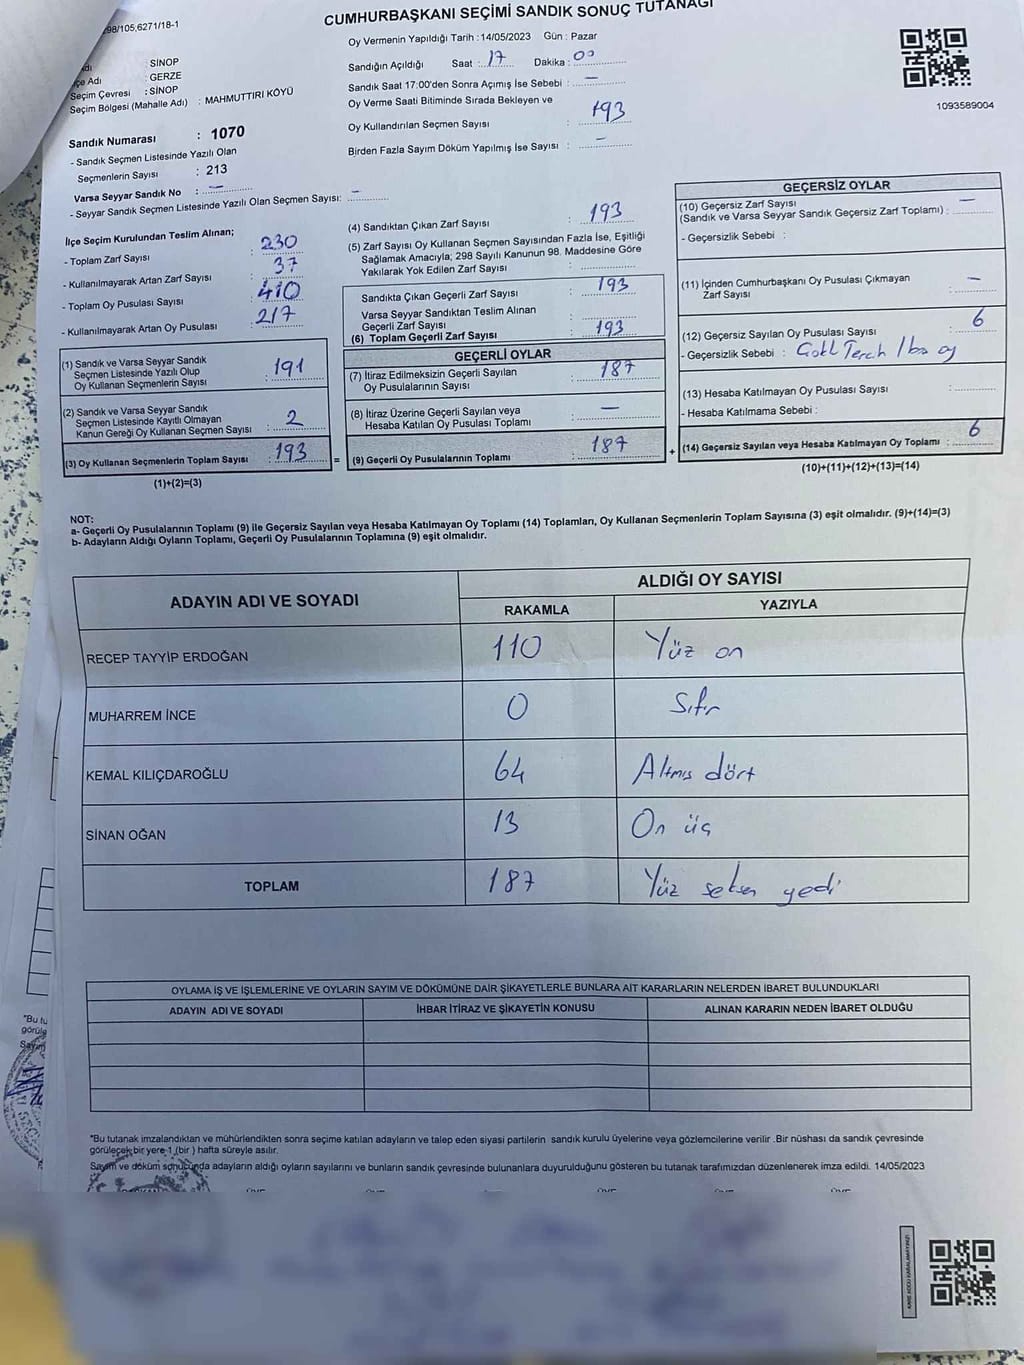 298/105,6271/18-1
CUMHURBAŞKANI SEÇİMİ SANDIK SONUÇ TUTANAĞI
Oy Vermenin Yapıldığı Tarih : 14/05/2023 Gün : Pazar
Sandığın Açıldığı Saat : 17 Dakika : 00
Sandık Saat 17:00'den Sonra Açımış İse Sebebi : —
Oy Verme Saati Bitiminde Sırada Bekleyen ve
Oy Kullandırılan Seçmen Sayısı : 193
Birden Fazla Sayım Döküm Yapılmış İse Sayısı : —
1093589004
: SİNOP
çe Adı : GERZE
Seçim Çevresi : SİNOP
Seçim Bölgesi (Mahalle Adı) : MAHMUTTIRI KÖYÜ
Sandık Numarası : 1070
- Sandık Seçmen Listesinde Yazılı Olan
Seçmenlerin Sayısı : 213
Varsa Seyyar Sandık No : —
- Seyyar Sandık Seçmen Listesinde Yazılı Olan Seçmen Sayısı: —
İlçe Seçim Kurulundan Teslim Alınan;
- Toplam Zarf Sayısı 230
- Kullanılmayarak Artan Zarf Sayısı 37
- Toplam Oy Pusulası Sayısı 410
- Kullanılmayarak Artan Oy Pusulası 217
(1) Sandık ve Varsa Seyyar Sandık
Seçmen Listesinde Yazılı Olup
Oy Kullanan Seçmenlerin Sayısı : 191
(2) Sandık ve Varsa Seyyar Sandık
Seçmen Listesinde Kayıtlı Olmayan
Kanun Gereği Oy Kullanan Seçmen Sayısı : 2
(3) Oy Kullanan Seçmenlerin Toplam Sayısı : 193
(1)+(2)=(3)
(4) Sandıktan Çıkan Zarf Sayısı : 193
(5) Zarf Sayısı Oy Kullanan Seçmen Sayısından Fazla İse, Eşitliği
Sağlamak Amacıyla; 298 Sayılı Kanunun 98. Maddesine Göre
Yakılarak Yok Edilen Zarf Sayısı :
Sandıkta Çıkan Geçerli Zarf Sayısı : 193
Varsa Seyyar Sandıktan Teslim Alınan
Geçerli Zarf Sayısı :
(6) Toplam Geçerli Zarf Sayısı : 193
GEÇERLİ OYLAR
(7) İtiraz Edilmeksizin Geçerli Sayılan
Oy Pusulalarının Sayısı : 187
(8) İtiraz Üzerine Geçerli Sayılan veya
Hesaba Katılan Oy Pusulası Toplamı : —
= (9) Geçerli Oy Pusulalarının Toplamı : 187
GEÇERSİZ OYLAR
(10) Geçersiz Zarf Sayısı
(Sandık ve Varsa Seyyar Sandık Geçersiz Zarf Toplamı) : —
- Geçersizlik Sebebi :
(11) İçinden Cumhurbaşkanı Oy Pusulası Çıkmayan
Zarf Sayısı : —
(12) Geçersiz Sayılan Oy Pusulası Sayısı : 6
- Geçersizlik Sebebi : Tercih / boş oy
(13) Hesaba Katılmayan Oy Pusulası Sayısı :
- Hesaba Katılmama Sebebi :
+ (14) Geçersiz Sayılan veya Hesaba Katılmayan Oy Toplamı : 6
(10)+(11)+(12)+(13)=(14)
NOT:
a- Geçerli Oy Pusulalarının Toplamı (9) ile Geçersiz Sayılan veya Hesaba Katılmayan Oy Toplamı (14) Toplamları, Oy Kullanan Seçmenlerin Toplam Sayısına (3) eşit olmalıdır. (9)+(14)=(3)
b- Adayların Aldığı Oyların Toplamı, Geçerli Oy Pusulalarının Toplamına (9) eşit olmalıdır.
ADAYIN ADI VE SOYADI ALDIĞI OY SAYISI
RAKAMLA YAZIYLA
RECEP TAYYİP ERDOĞAN 110 Yüz on
MUHARREM İNCE 0 Sıfır
KEMAL KILIÇDAROĞLU 64 Altmış dört
SİNAN OĞAN 13 On üç
TOPLAM 187 Yüz seksen yedi
OYLAMA İŞ VE İŞLEMLERİNE VE OYLARIN SAYIM VE DÖKÜMÜNE DAİR ŞİKAYETLERLE BUNLARA AİT KARARLARIN NELERDEN İBARET BULUNDUKLARI
ADAYIN ADI VE SOYADI İHBAR İTİRAZ VE ŞİKAYETİN KONUSU ALINAN KARARIN NEDEN İBARET OLDUĞU
"Bu tu
görüle
Sayım
*Bu tutanak imzalandıktan ve mühürlendikten sonra seçime katılan adayların ve talep eden siyasi partilerin sandık kurulu üyelerine veya gözlemcilerine verilir .Bir nüshası da sandık çevresinde
görülecek bir yere 1 (bir ) hafta süreyle asılır.
Sayım ve döküm sonucunda adayların aldığı oyların sayılarını ve bunların sandık çevresinde bulunanlara duyurulduğunu gösteren bu tutanak tarafımızdan düzenlenerek imza edildi. 14/05/2023